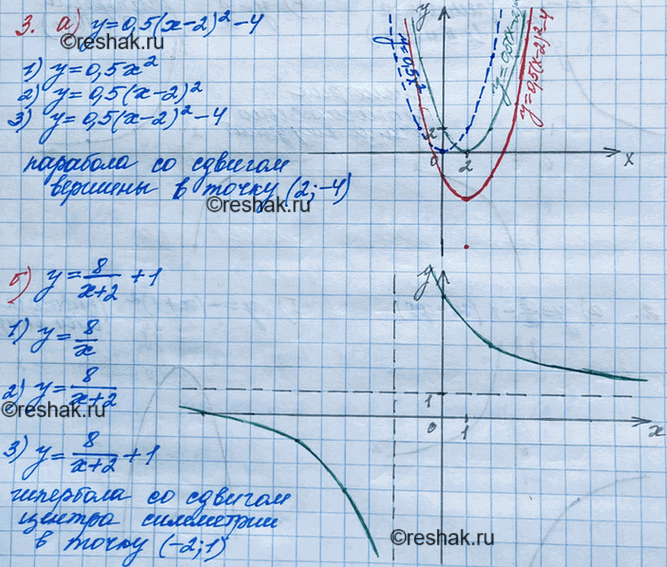 3. а) y=0,5(x-2)²-4
©reshak.ru
1) y=0,5x²
2) y=0,5(x-2)²
3) y=0,5(x-2)²-4
парабола со сдвигом
вершины в точку (2;-4)
©reshak.ru
y
y=0,5x²
y=0,5(x-2)²
y=0,5(x-2)²-4
2
0
2
x
©reshak.ru
б) y=8/(x+2)+1
1) y=8/x
2) y=8/(x+2)
©reshak.ru
3) y=8/(x+2)+1
гипербола со сдвигом
центра симметрии
в точку (-2;1)
y
1
0
1
x
©reshak.ru